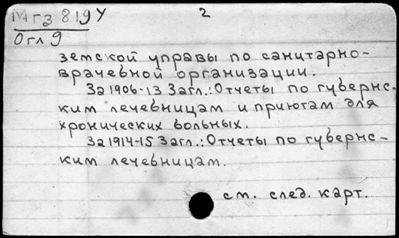 Мгз 819У 2
Огл 9
земской управы по санитарно-
врачебной организации.
За 1906-13 Загл.: Отчеты по губернс-
ким лечебницам и приютам для
хронических больных.
За 1914-15 Загл.: Отчеты по губернс-
ким лечебницам.
см. след. карт.